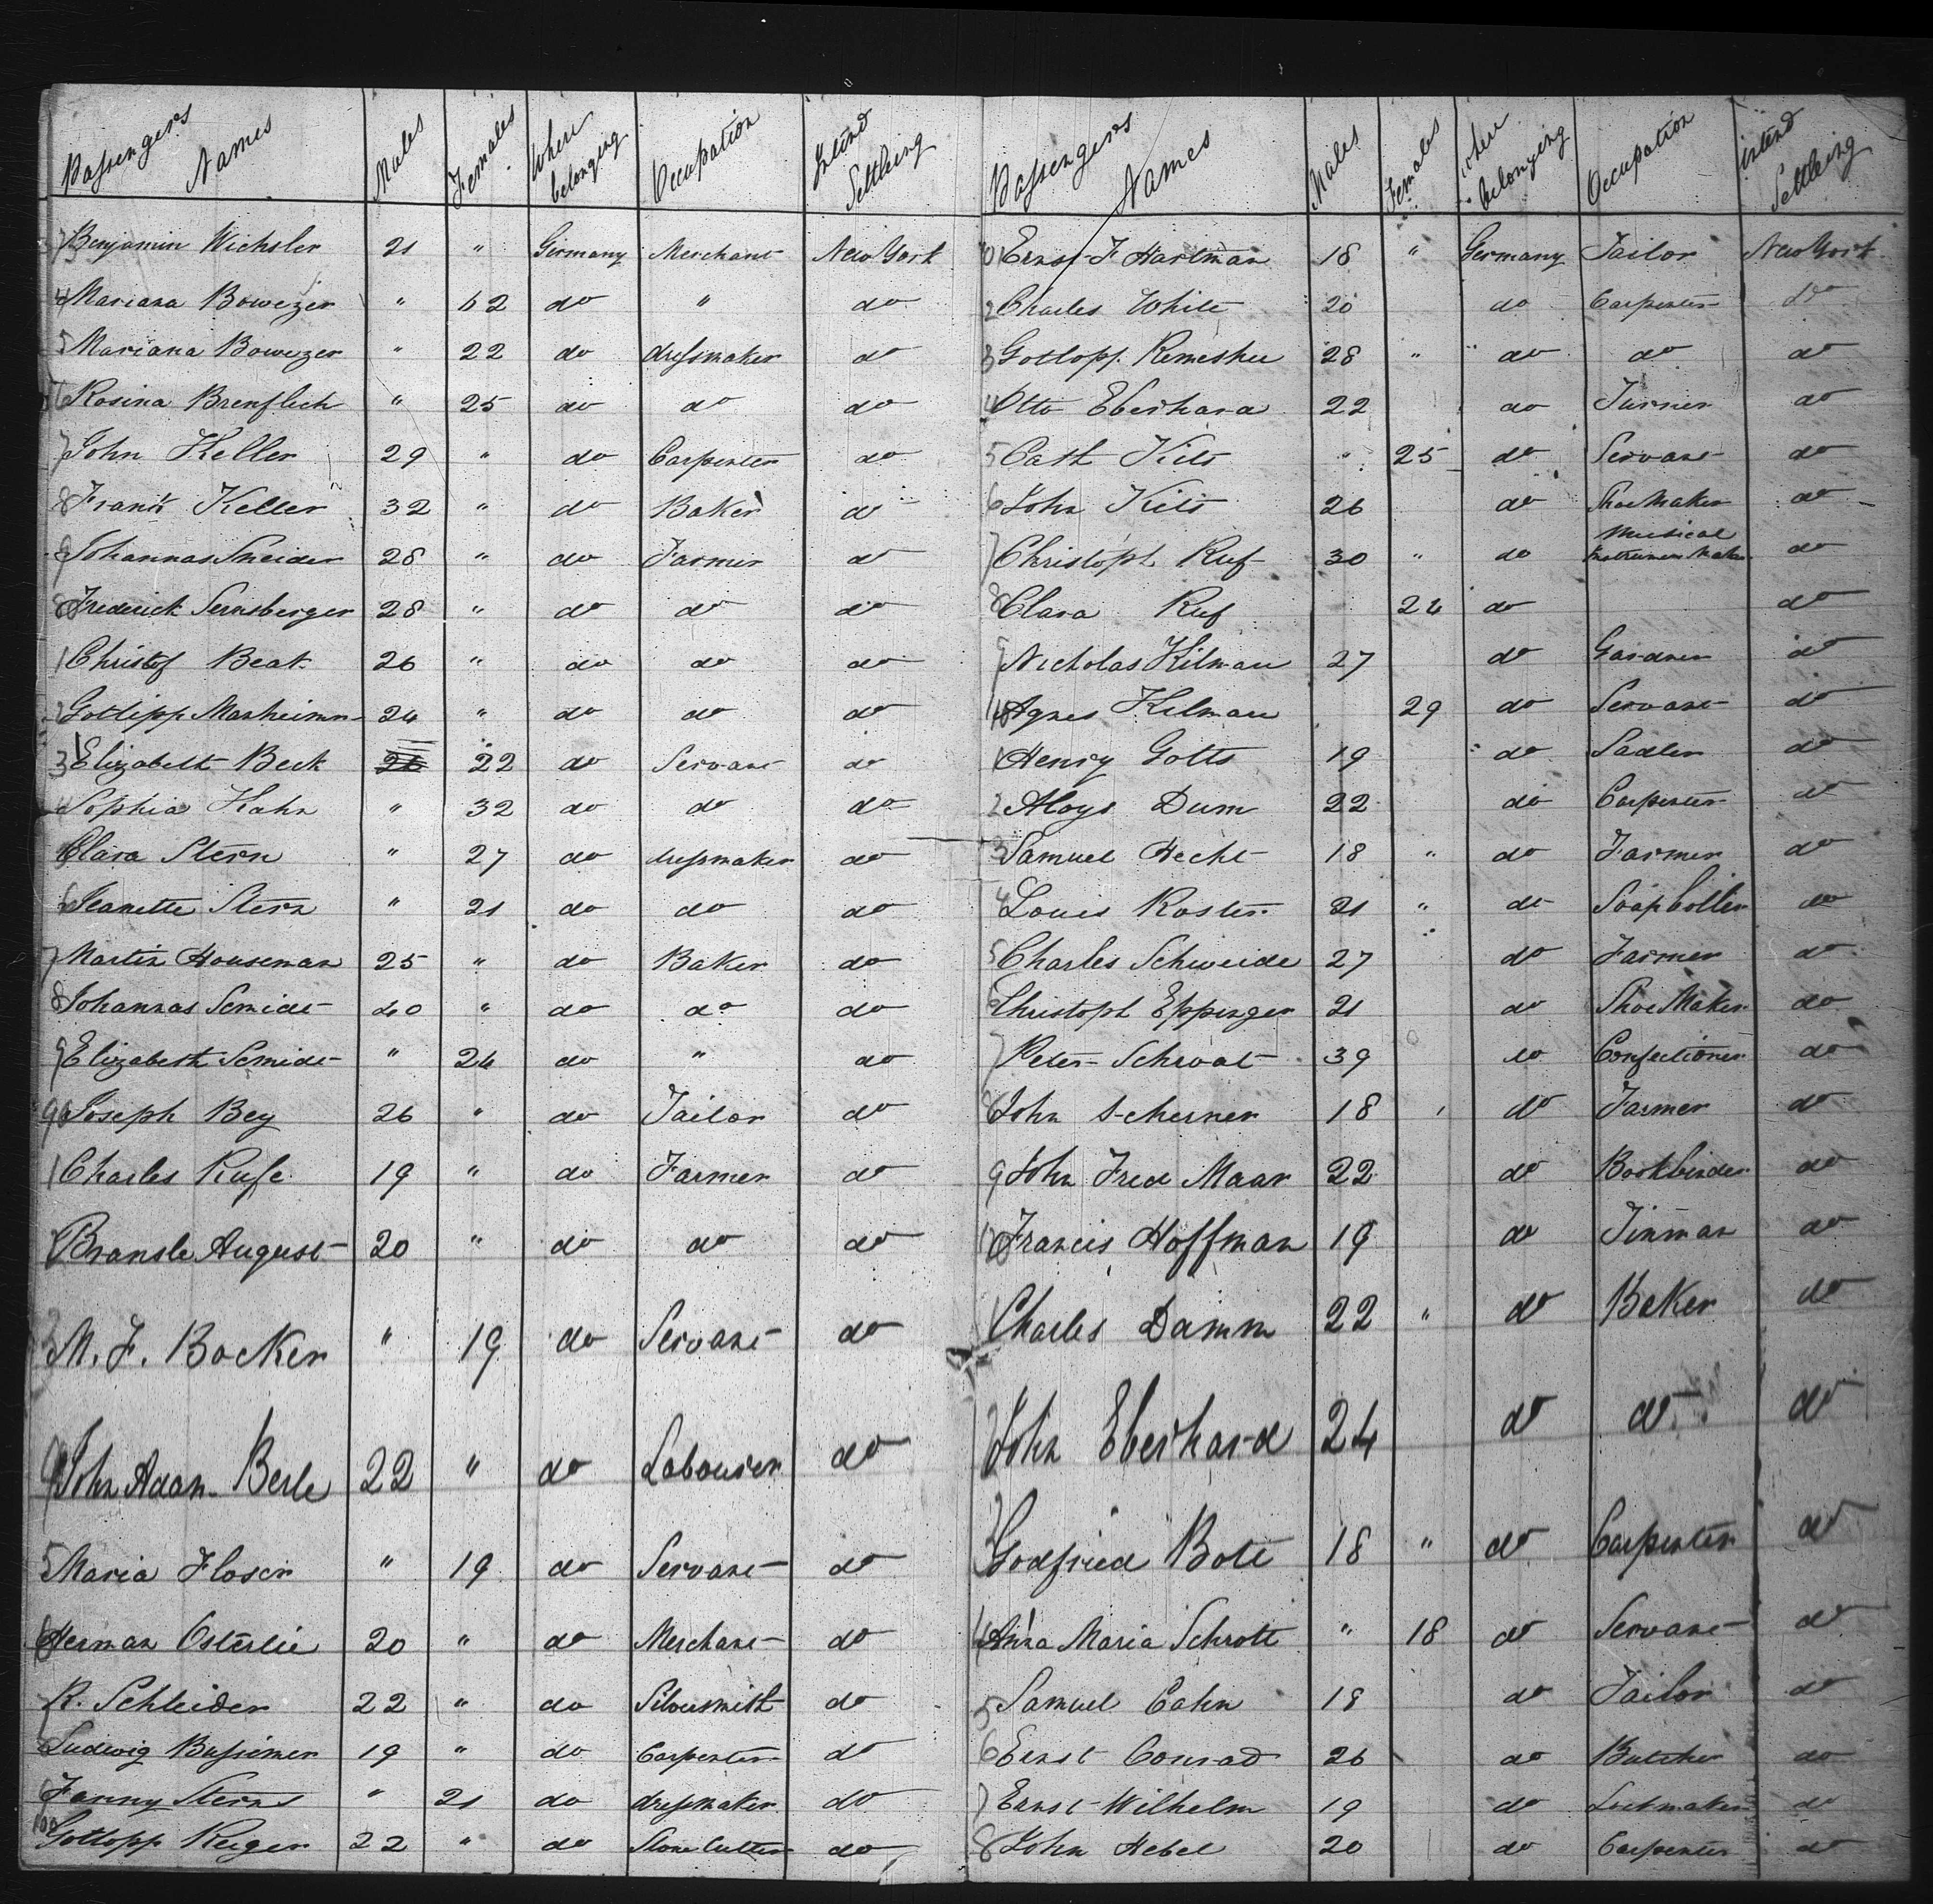 Passengers Names Males Females Where belonging Occupation Intend Settleing
73 Benjamin Wichsler 21 " Germany Merchant New York
4 Mariana Bowezer " 62 do " do
5 Mariana Bowezer " 22 do dressmaker do
76 Rosina Brenflech " 25 do do do
7 John Keller 29 " do Carpenter do
8 Frank Keller 32 " do Baker do
9 Johannas Sneider 28 " do Farmer do
80 Frederick Sernsberger 28 " do do do
1 Christof Beak 26 " do do do
2 Gotlipp Manheimn 24 " do do do
3 Elizabeth Beck 22 do Servant do
4 Sophia Kahn " 32 do do do
5 Clara Stern " 27 do dressmaker do
6 Jeanette Stern " 21 do do do
7 Martin Houseman 25 " do Baker do
8 Johannas Semidt 40 " do do do
9 Elizabeth Semidt " 24 do " do
90 Joseph Bey 26 " do Tailor do
1 Charles Ruse 19 " do Farmer do
2 Bransle August 20 " do do do
3 M. F. Bocker " 19 do Servant do
94 John Adam Berle 22 " do Labourer do
5 Maria Floser " 19 do Servant do
6 Herman Osterlie 20 " do Merchant do
7 R. Schleider 22 " do Silversmith do
8 Ludwig Bussimer 19 " do Carpenter do
9 Fanny Sterns " 21 do dressmaker do
100 Gottopp Reiger 22 " do Stone Cutter do
Passengers Names Males Females where belonging Occupation intend Settleing
101 Ernst F Hartman 18 " Germany Tailor New York
2 Charles White 20 do Carpenter do
3 Gottopp Remeshu 28 " do do do
4 Otto Eberhara 22 do Turner do
5 Cath Kits " 25 do Servant do
6 John Kits 26 do Shoe Maker do
7 Christoph Ruf 30 " do Musical Instrument Maker do
8 Clara Ruf 24 do do
9 Nicholas Kilman 27 do Gardner do
110 Agnes Kilman 29 do Servant do
1 Henry Gotts 19 do Sadler do
2 Aloys Dum 22 do Carpenter do
3 Samuel Hecht 18 " do Farmer do
4 Louis Rosten 21 " do Soapboiler do
5 Charles Schweide 27 do Farmer do
6 Christoph Eppinger 21 do Shoe Maker do
7 Peter Schwat 39 do Confectioner do
8 John Scherner 18 do Farmer do
9 John Fred Maar 22 do Bookbinder do
120 Francis Hoffman 19 do Tinman do
1 Charles Damm 22 " do Baker do
2 John Eberhard 24 do do do
3 Godfried Bote 18 " do Carpenter do
4 Anna Maria Schrott " 18 do Servant do
5 Samuel Cahn 18 do Tailor do
6 Ernst Conrad 26 do Butcher do
7 Ernst Wilhelm 19 do Lockmaker do
8 John Hebel 20 do Carpenter do